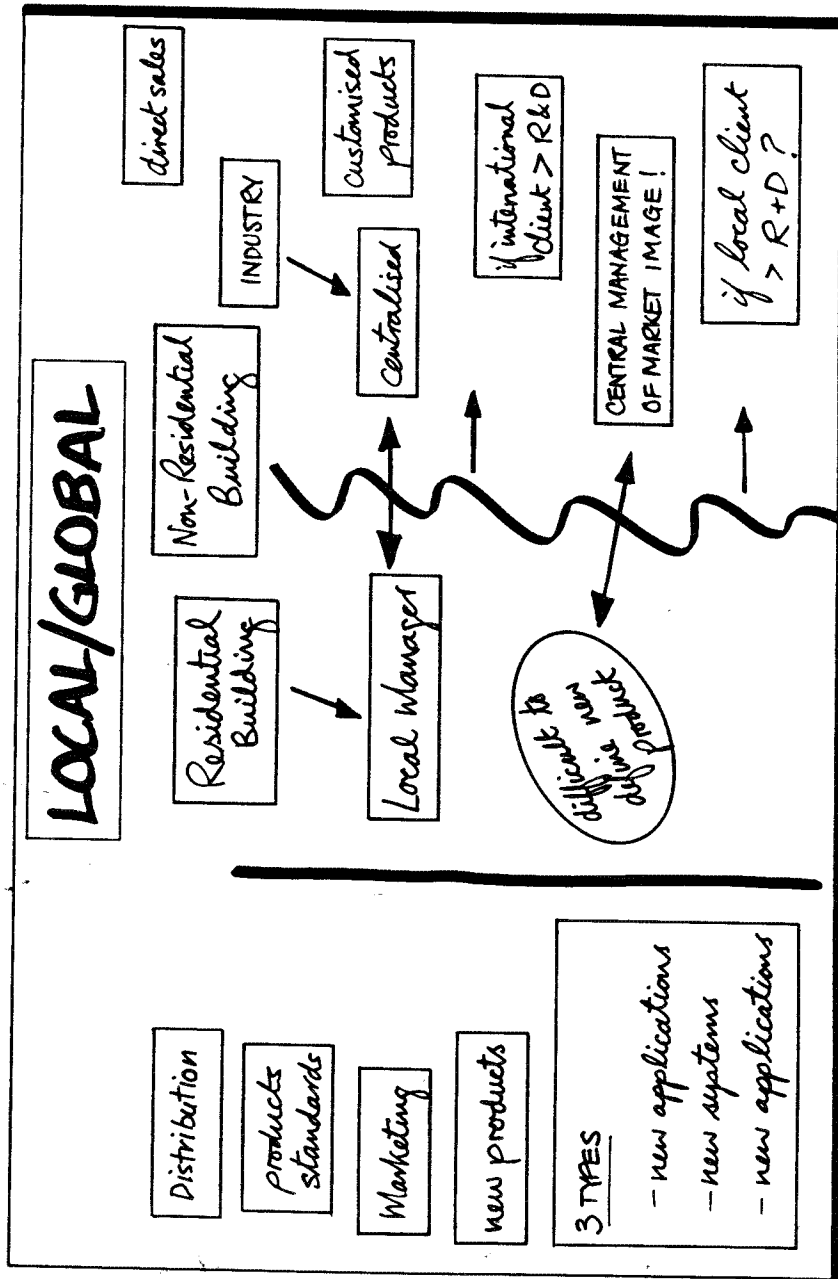 LOCAL/GLOBAL
Distribution
products
standards
Marketing
new products
3 TYPES
- new applications
- new systems
- new applications
Residential
Building
Local Manager
difficult to
define new
product
Non-Residential
Building
INDUSTRY
direct sales
centralised
customised
products
if international
client > R&D
CENTRAL MANAGEMENT
OF MARKET IMAGE!
if local client
> R+D?